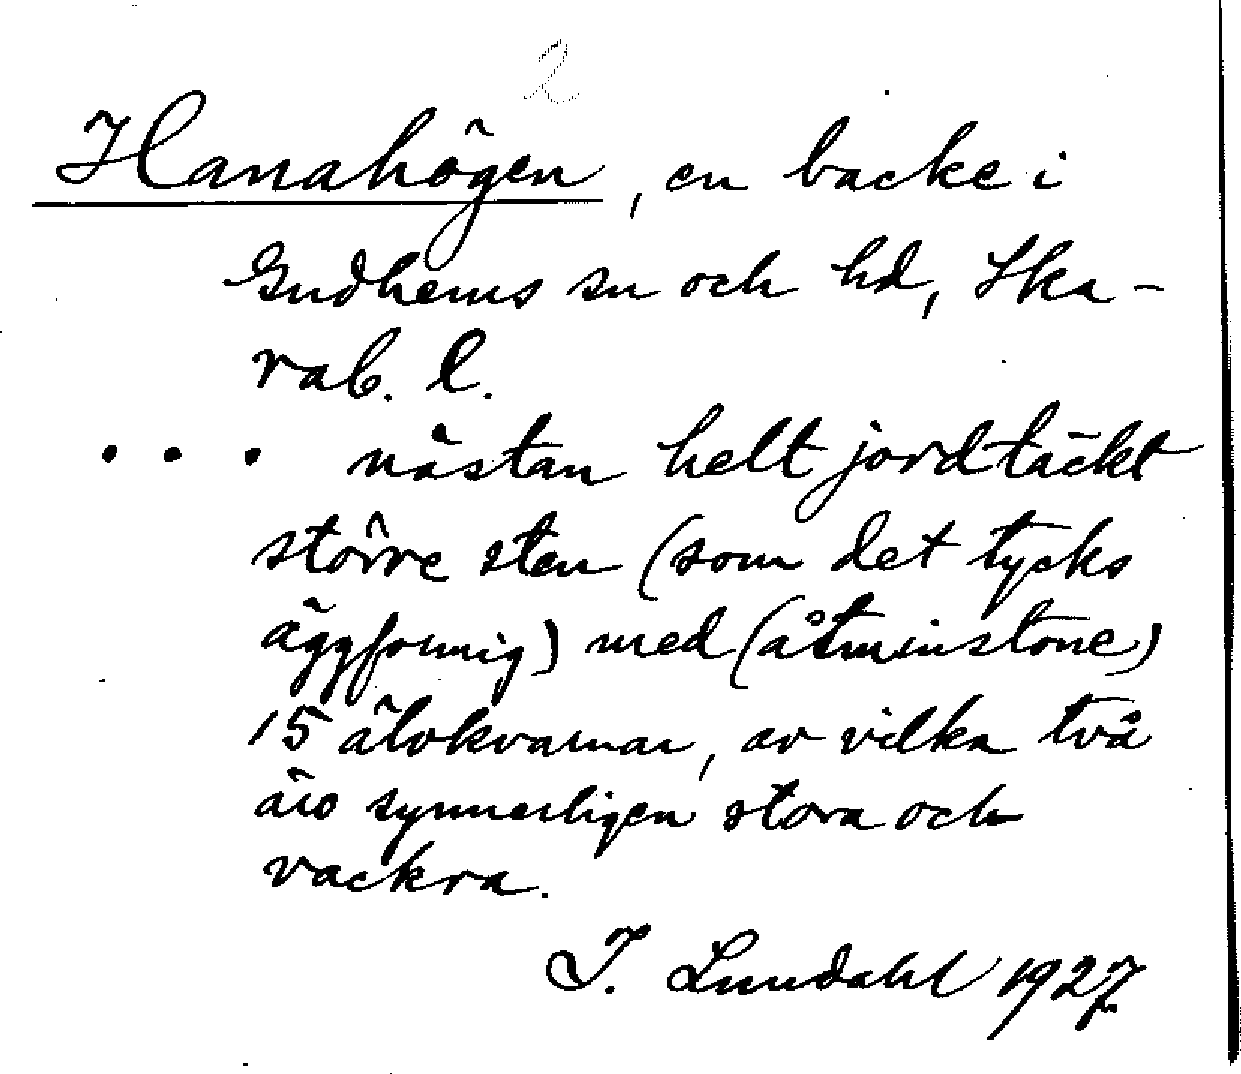 2
Hanahögen, en backe i
Gudhems sn och hd, Ska-
rab. l.
... nästan helt jordtäckt
större sten (som det tycks
äggformig) med (åtminstone)
15 älvkvarnar, av vilka två
äro synnerligen stora och
vackra.
I. Lundahl 1927